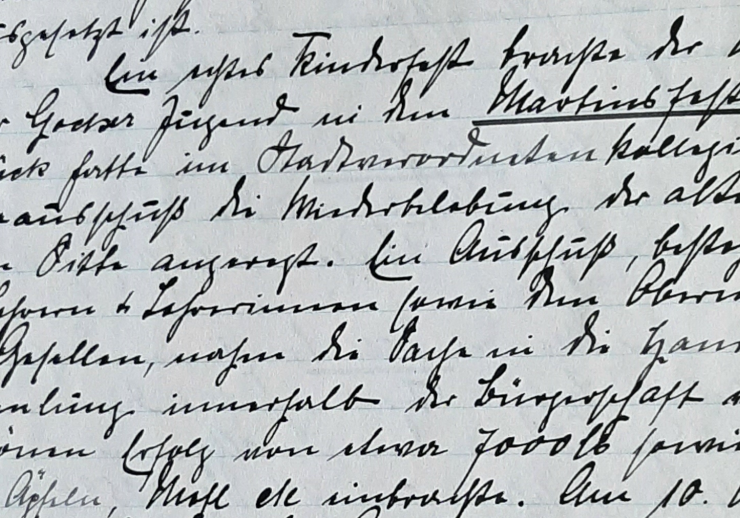 sgesetzt ist.
Ein echtes Kinderfest brachte der
r Gocher Jugend in dem Martinsfest
ück hatte im Stadtverordnetenkollegi
rausschuß die Wiederbelebung der alte
n Sitte angeregt. Ein Ausschuß, beste
ehrern & Lehrerinnen sowie dem Oberm
Gesellen, nahm die Sache in die Hand
mlung innerhalb der Bürgerschaft
önen Erfolg von etwa 7000 sowie
Äpfeln, Mehl etc einbrachte. Am 10.